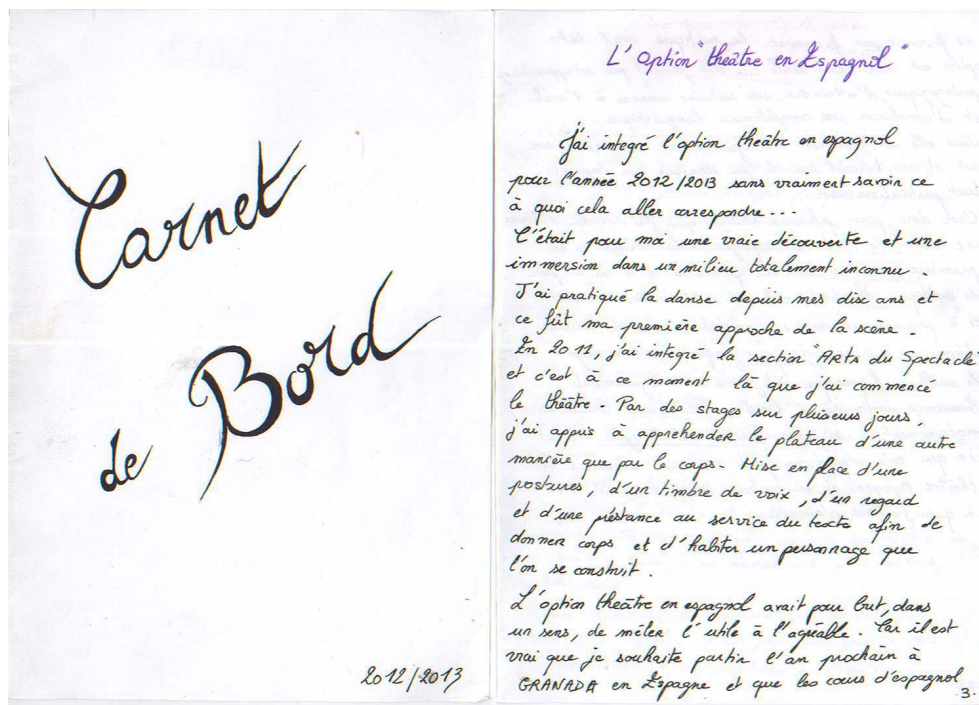 Carnet
de Bord
2012/2013
L'Option "théâtre en Espagnol"
J'ai integré l'option theâtre en espagnol
pour l'année 2012/2013 sans vraiment savoir ce
à quoi cela aller correspondre...
C'était pour moi une vraie découverte et une
immersion dans un milieu totalement inconnu.
J'ai pratiqué la danse depuis mes dix ans et
ce fût ma première approche de la scène.
En 2011, j'ai integré la section "ARTS du Spectacle"
et c'est à ce moment là que j'ai commencé
le théâtre. Par des stages sur plusieurs jours,
j'ai appris à apprehender le plateau d'une autre
manière que par le corps. Mise en place d'une
postures, d'un timbre de voix, d'un regard
et d'une préstance au service du texte afin de
donner corps et d'habiter un personnage que
l'on se construit.
L'option theâtre en espagnol avait pour but, dans
un sens, de mêler l'utile à l'agréable. Car il est
vrai que je souhaite partir l'an prochain à
GRANADA en Espagne et que les cours d'espagnol
3.